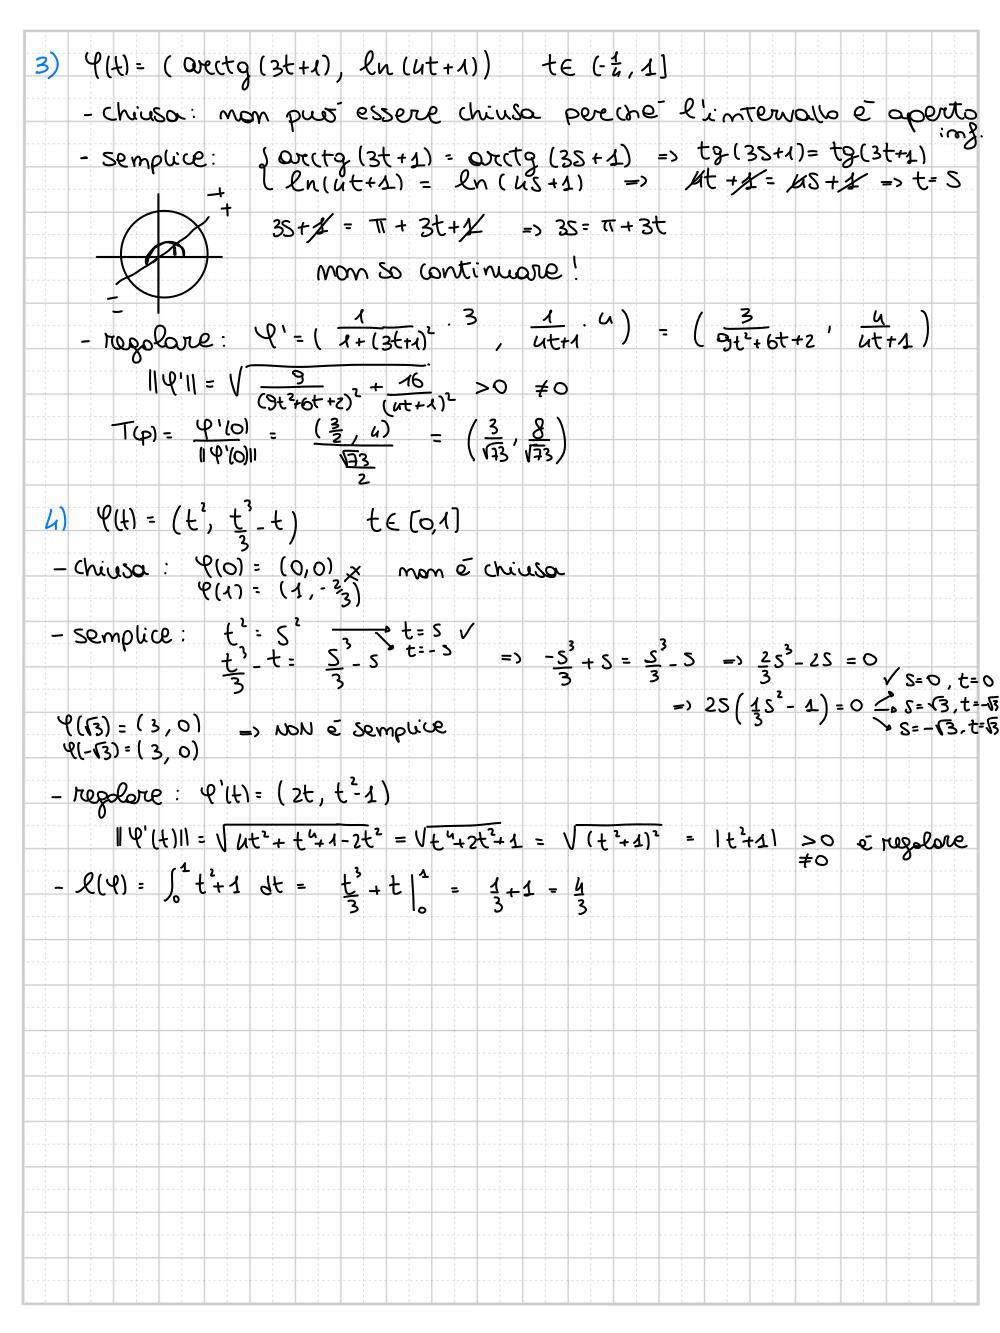 3) φ(t) = (arctg(3t+1), ln(4t+1)) t∈(-1/4, 1]
- chiusa: non può essere chiusa perché l'intervallo è aperto inf.
- semplice: { arctg(3t+1) = arctg(3s+1) => tg(3s+1) = tg(3t+1)
ln(4t+1) = ln(4s+1) => 4t+1 = 4s+1 => t=s
+ +
3s+1 = π + 3t+1 => 3s = π+3t
non so continuare!
- -
- regolare: φ' = (1/(1+(3t+1)²) · 3, 1/(4t+1) · 4) = (3/(9t²+6t+2), 4/(4t+1))
||φ'|| = √(9/(9t²+6t+2)² + 16/(4t+1)²) >0 ≠0
T(φ) = φ'(0)/||φ'(0)|| = (3/2, 4)/(√73/2) = (3/√73, 8/√73)
4) φ(t) = (t², t³/3 - t) t∈[0,1]
- chiusa: φ(0) = (0,0) x non è chiusa
φ(1) = (1, -2/3)
- semplice: t² = s² → t=s ✓
t=-s
t³/3 - t = s³/3 - s => -s³/3 + s = s³/3 - s => 2/3 s³ - 2s = 0
=> 2s(1/3 s² - 1) = 0 ✓ s=0, t=0
s=√3, t=-√3
s=-√3, t=√3
φ(√3) = (3, 0) => NON è semplice
φ(-√3) = (3, 0)
- regolare: φ'(t) = (2t, t²-1)
||φ'(t)|| = √(4t² + t⁴+1-2t²) = √(t⁴+2t²+1) = √((t²+1)²) = |t²+1| >0 ≠0 è regolare
- l(φ) = ∫₀¹ t²+1 dt = t³/3 + t |₀¹ = 1/3 + 1 = 4/3